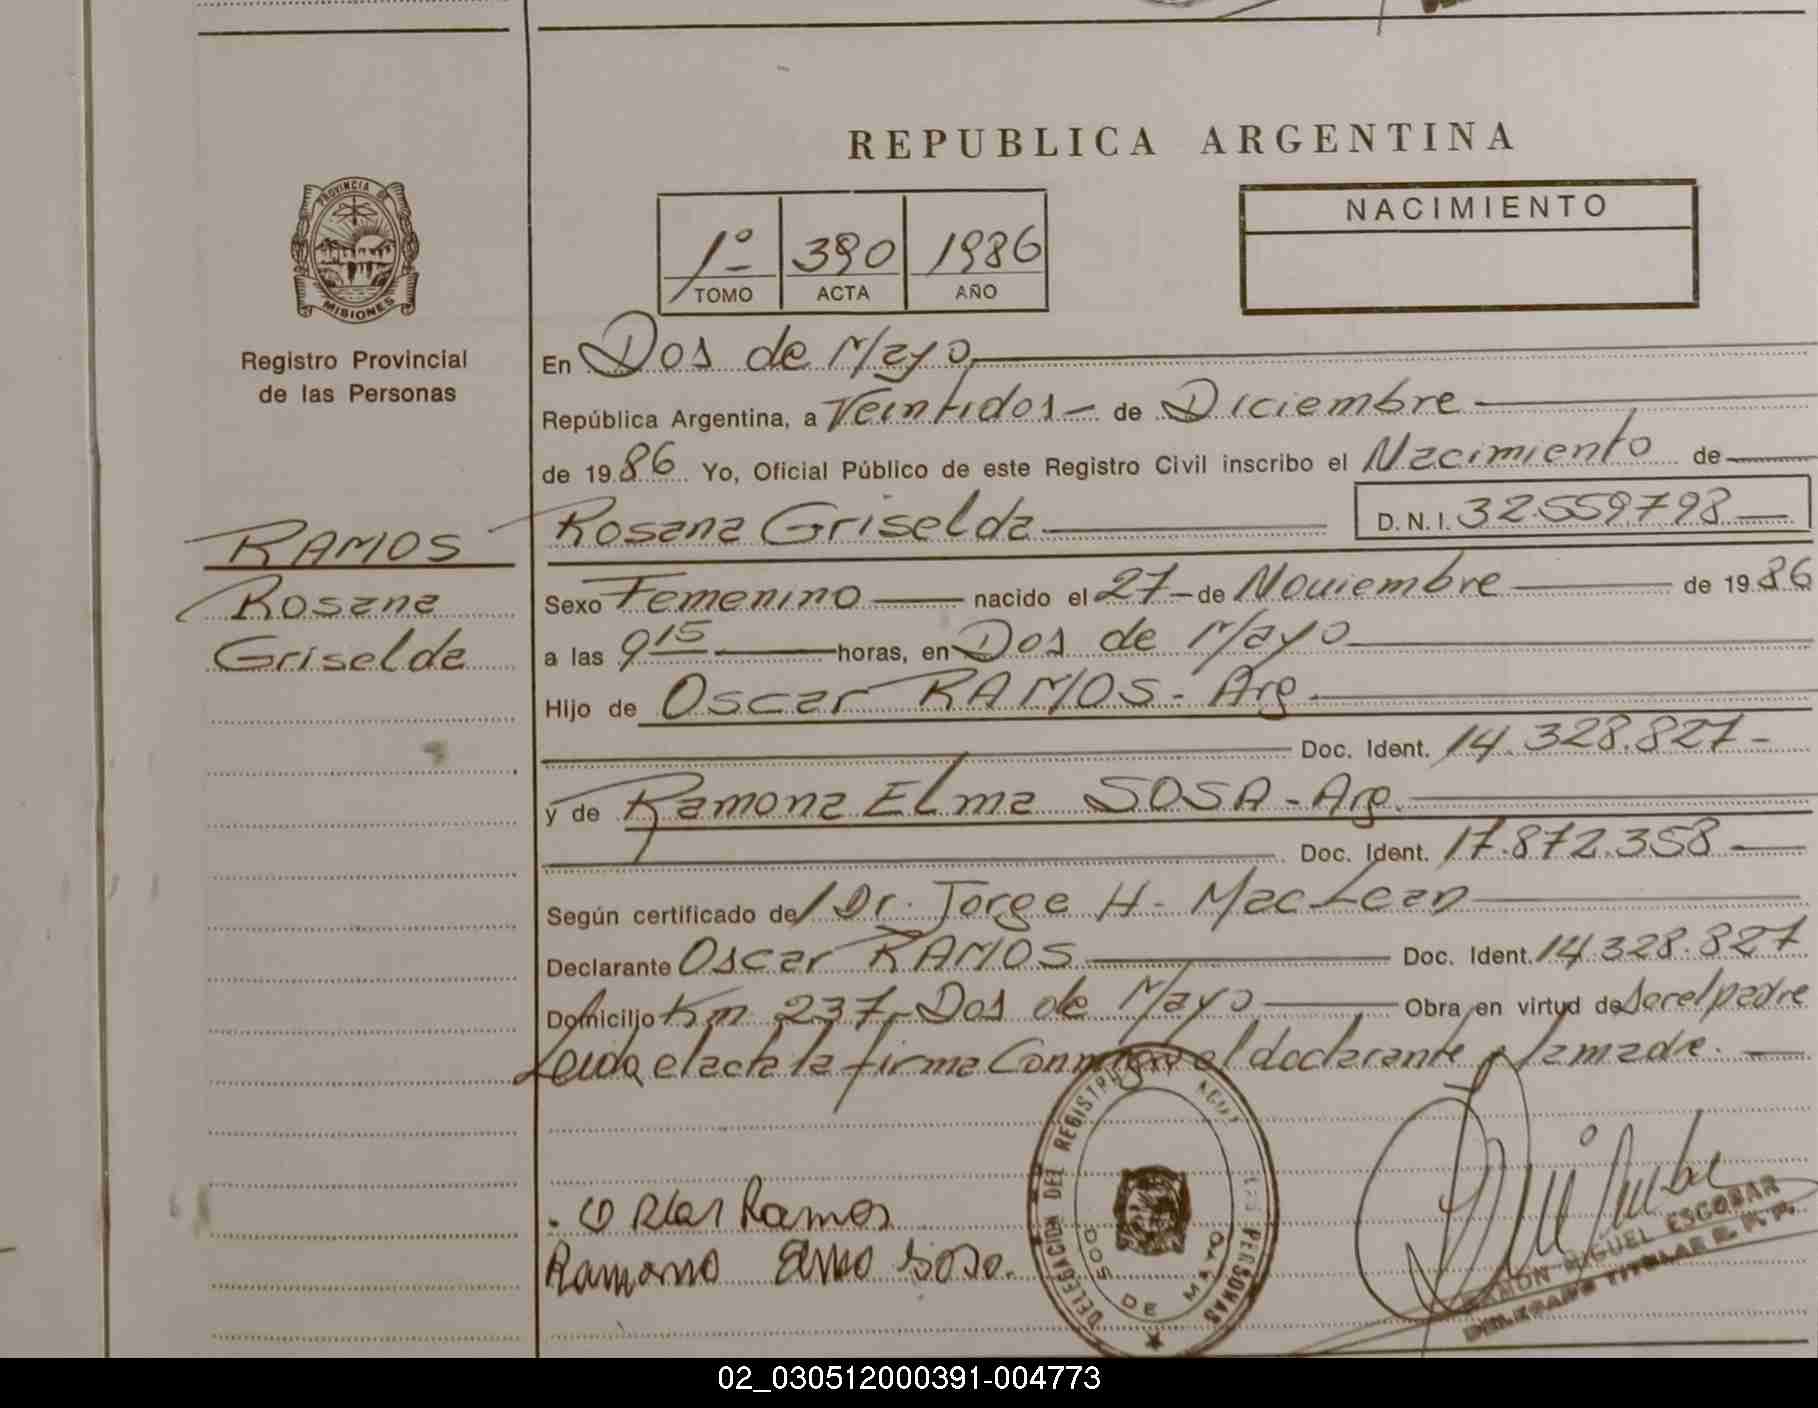 REPUBLICA ARGENTINA
PROVINCIA DE
MISIONES
Registro Provincial
de las Personas
1º 390 1986
TOMO ACTA AÑO
NACIMIENTO
En Dos de Mayo
República Argentina, a Veintidos - de Diciembre
de 19 86 Yo, Oficial Público de este Registro Civil inscribo el Nacimiento de
Rosana Griselda D.N.I. 32559798
RAMOS
Rosana
Griselda
Sexo Femenino nacido el 27 - de Noviembre de 19 86
a las 9 15 horas, en Dos de Mayo
Hijo de Oscar RAMOS - Arg.
Doc. Ident. 14.328.827 -
y de Ramona Elma SOSA - Arg.
Doc. Ident. 17.872.358
Según certificado de Dr. Jorge H. Mac Lean
Declarante Oscar RAMOS Doc. Ident. 14.328.827
Domicilio Km 237 - Dos de Mayo Obra en virtud de ser el padre
Leida el acta la firma Conmigo el declarante y la madre.
Oscar Ramos
Ramona Elma Sosa.
DELEGACION DEL REGISTRO
LAS PERSONAS
DE MAYO
RAMON MIGUEL ESCOBAR
DELEGADO TITULAR R. P. P.
02_030512000391-004773